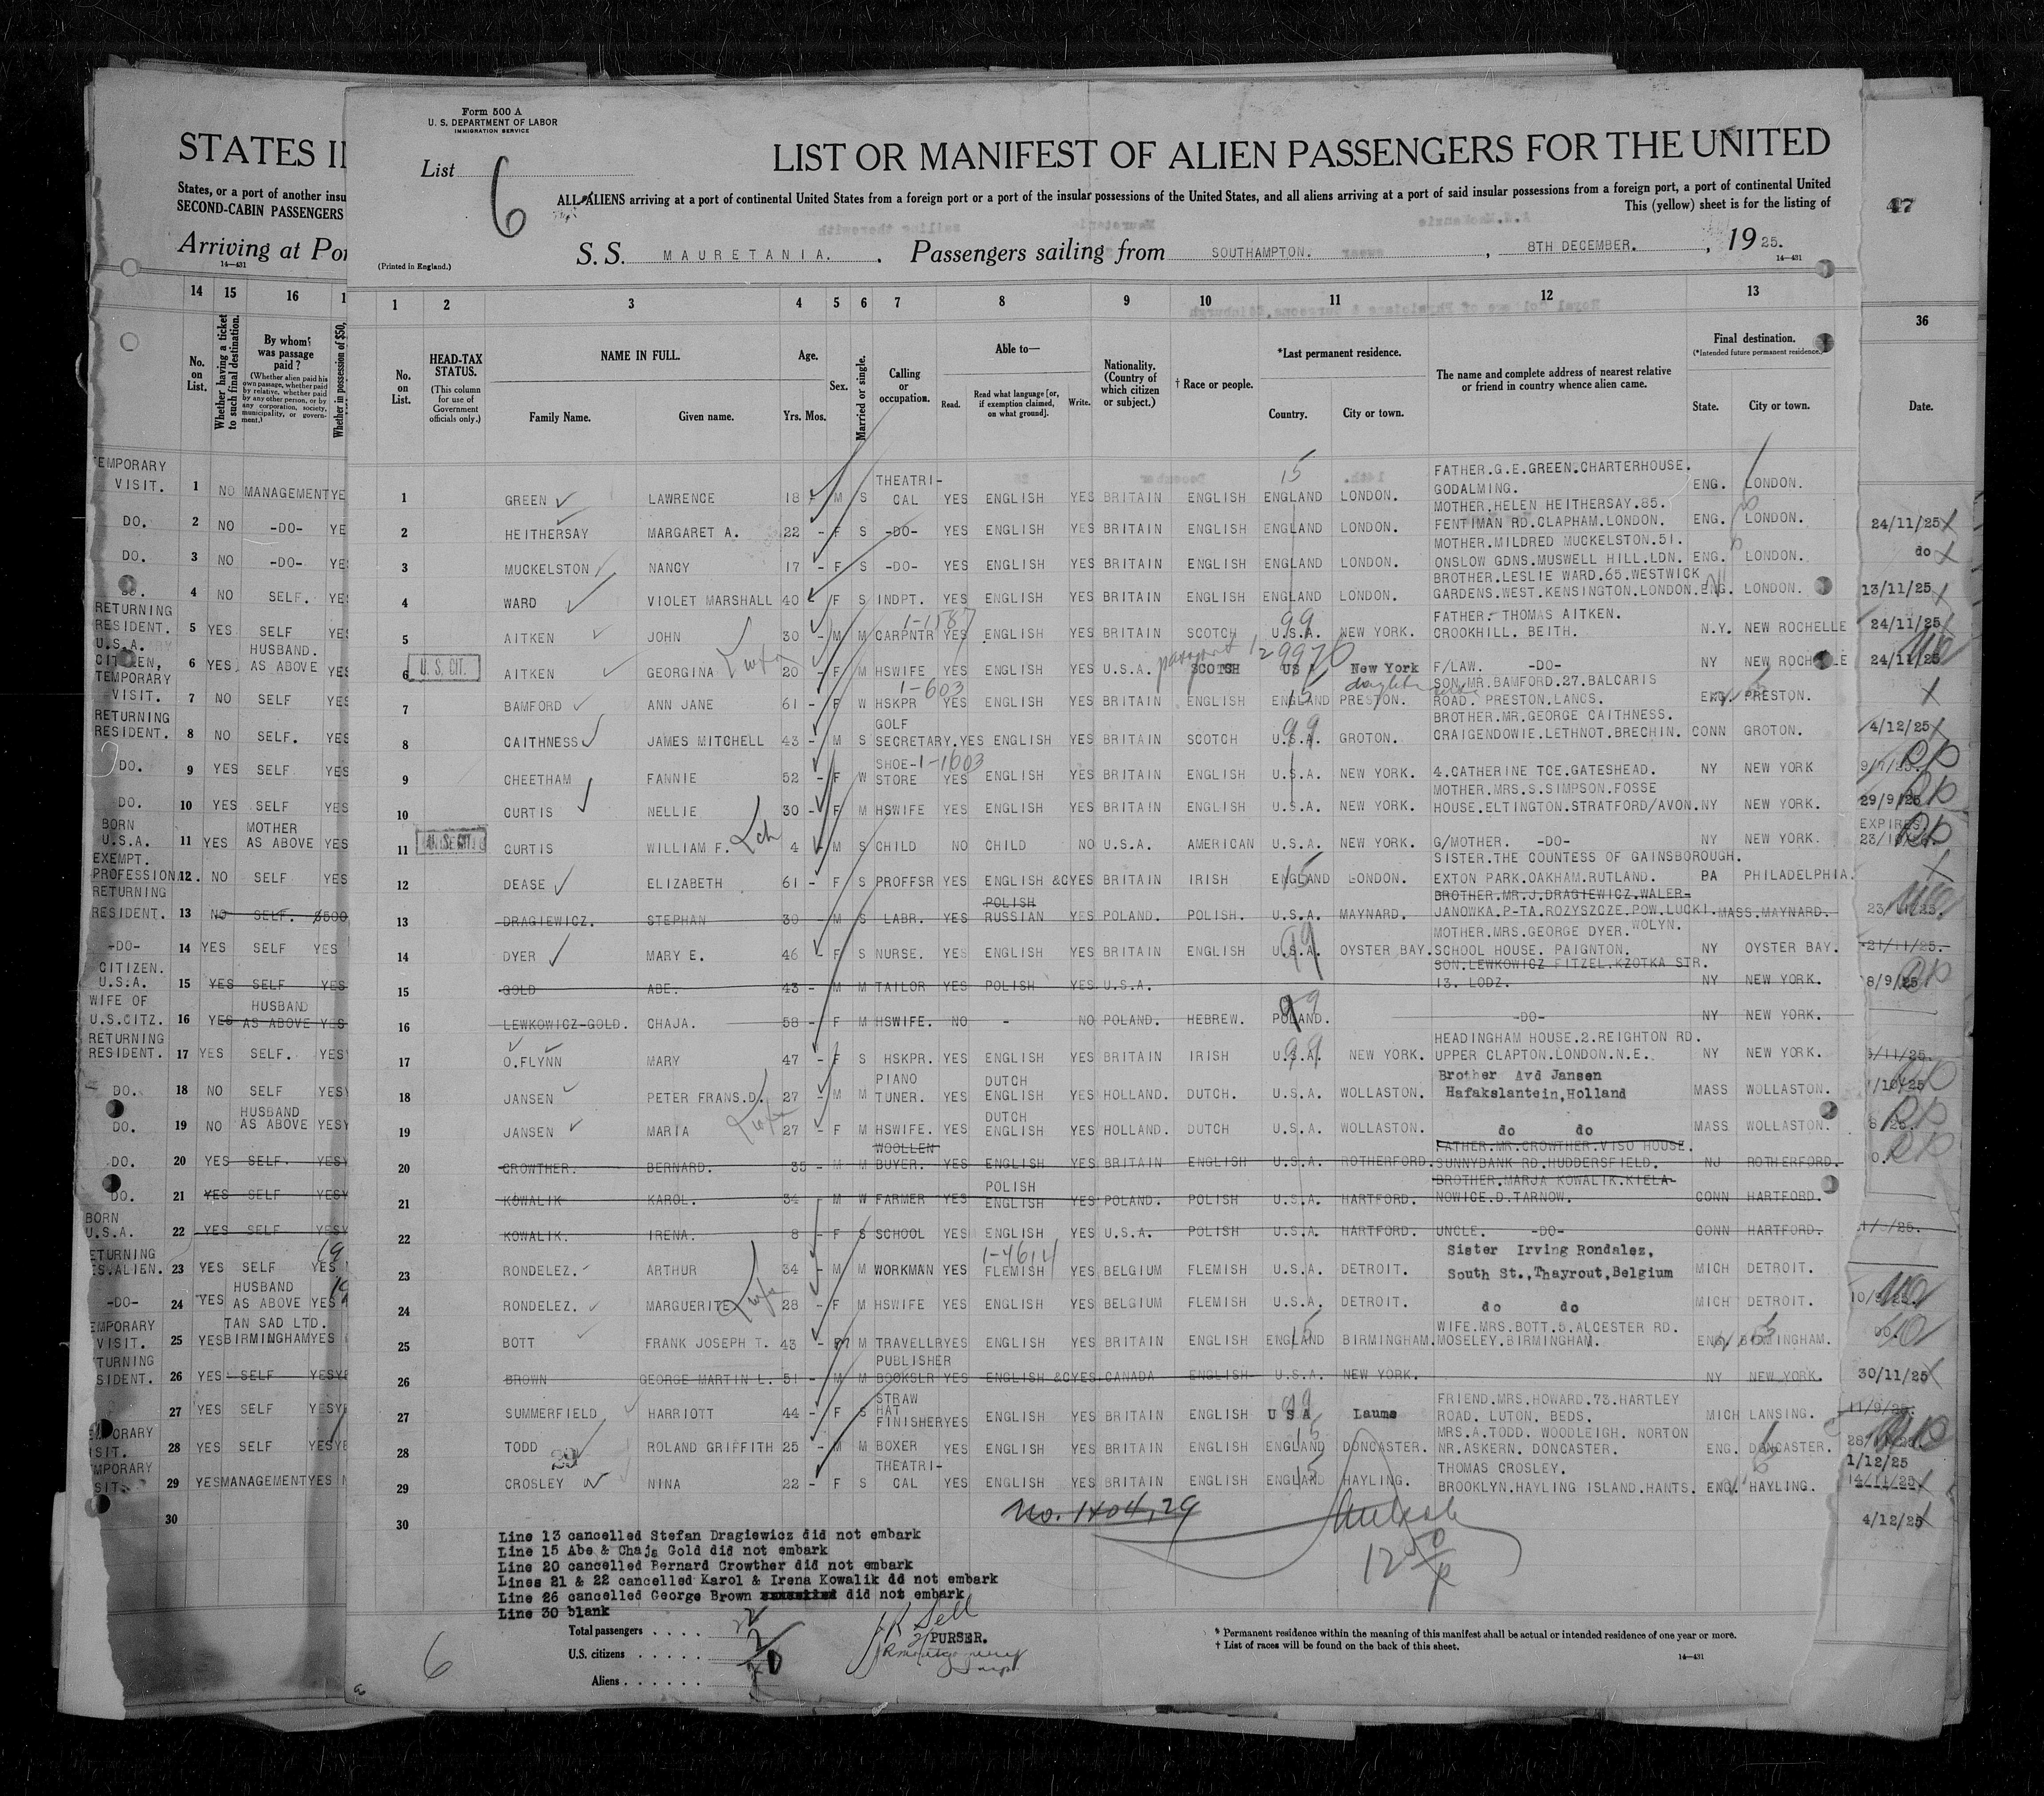 Form 500 A
U. S. DEPARTMENT OF LABOR
IMMIGRATION SERVICE
List 6
LIST OR MANIFEST OF ALIEN PASSENGERS FOR THE UNITED
ALL ALIENS arriving at a port of continental United States from a foreign port or a port of the insular possessions of the United States, and all aliens arriving at a port of said insular possessions from a foreign port, a port of continental United
This (yellow) sheet is for the listing of
(Printed in England.)
S. S. MAURETANIA. Passengers sailing from SOUTHAMPTON. , 8TH DECEMBER. , 1925.
14—431
STATES I
States, or a port of another insu
SECOND-CABIN PASSENGERS
Arriving at Por
14—431
47
14 15 16
No. on List.
Whether having a ticket to such final destination.
By whom was passage paid?
(Whether alien paid his own passage, whether paid by relative, whether paid by any other person, or by any corporation, society, municipality, or government.)
Whether in possession of $50,
1 2 3 4 5 6 7 8 9 10 11 12 13
36
No. on List.
HEAD-TAX STATUS.
(This column for use of Government officials only.)
NAME IN FULL.
Family Name. Given name.
Age.
Yrs. Mos.
Sex.
Married or single.
Calling or occupation.
Able to—
Read. Read what language [or, if exemption claimed, on what ground]. Write.
Nationality. (Country of which citizen or subject.)
† Race or people.
*Last permanent residence.
Country. City or town.
The name and complete address of nearest relative or friend in country whence alien came.
Final destination.
(*Intended future permanent residence.)
State. City or town.
Date.
TEMPORARY VISIT. 1 NO MANAGEMENT YE
1 GREEN LAWRENCE 18 M S THEATRICAL YES ENGLISH YES BRITAIN ENGLISH ENGLAND LONDON. FATHER.G.E.GREEN.CHARTERHOUSE. GODALMING. ENG. LONDON.
DO. 2 NO -DO- YE
2 HEITHERSAY MARGARET A. 22 - F S -DO- YES ENGLISH YES BRITAIN ENGLISH ENGLAND LONDON. MOTHER.HELEN HEITHERSAY.85. FENTIMAN RD.CLAPHAM.LONDON. ENG. LONDON. 24/11/25
DO. 3 NO -DO- YE
3 MUCKELSTON NANCY 17 - F S -DO- YES ENGLISH YES BRITAIN ENGLISH ENGLAND LONDON. MOTHER.MILDRED MUCKELSTON.51. ONSLOW GDNS.MUSWELL HILL.LDN. ENG. LONDON. do
4 NO SELF. YES
4 WARD VIOLET MARSHALL 40 F S INDPT. YES ENGLISH YES BRITAIN ENGLISH ENGLAND LONDON. BROTHER.LESLIE WARD.65.WESTWICK GARDENS.WEST.KENSINGTON.LONDON. ENG. LONDON. 13/11/25
RETURNING RESIDENT. 5 YES SELF YES
5 AITKEN JOHN 30 - M M CARPNTR 1-1587 YES ENGLISH YES BRITAIN SCOTCH U.S.A. NEW YORK. FATHER. THOMAS AITKEN. CROOKHILL. BEITH. N.Y. NEW ROCHELLE 24/11/25
U.S.A. CITIZEN, 6 YES HUSBAND. AS ABOVE YES
6 U. S. CIT. AITKEN GEORGINA 20 - F M HSWIFE YES ENGLISH YES U.S.A. SCOTCH USA New York F/LAW. -DO- NY NEW ROCHELLE 24/11/25
TEMPORARY VISIT. 7 NO SELF YES
7 BAMFORD ANN JANE 61 - F W HSKPR 1-603 YES ENGLISH YES BRITAIN ENGLISH ENGLAND PRESTON. SON.MR.BAMFORD.27.BALCARIS ROAD. PRESTON.LANCS. ENG. PRESTON.
RETURNING RESIDENT. 8 NO SELF. YES
8 CAITHNESS JAMES MITCHELL 43 - M S GOLF SECRETARY. YES ENGLISH YES BRITAIN SCOTCH U.S.A. GROTON. BROTHER.MR.GEORGE CAITHNESS. CRAIGENDOWIE.LETHNOT.BRECHIN. CONN GROTON. 4/12/25
DO. 9 YES SELF YES
9 CHEETHAM FANNIE 52 - F W SHOE-STORE 1-1603 YES ENGLISH YES BRITAIN ENGLISH U.S.A. NEW YORK. 4.CATHERINE TCE.GATESHEAD. NY NEW YORK 9/7/25.
DO. 10 YES SELF YES
10 CURTIS NELLIE 30 - F M HSWIFE YES ENGLISH YES BRITAIN ENGLISH U.S.A. NEW YORK. MOTHER.MRS.S.SIMPSON.FOSSE HOUSE.ELTINGTON.STRATFORD/AVON. NY NEW YORK. 29/9/25
BORN U.S.A. 11 YES MOTHER AS ABOVE YES
11 CURTIS WILLIAM F. 4 - M S CHILD NO CHILD NO U.S.A. AMERICAN U.S.A. NEW YORK. G/MOTHER. -DO- NY NEW YORK. EXPIRES.
EXEMPT. PROFESSIONAL 12. NO SELF YES
12 DEASE ELIZABETH 61 - F S PROFFSR YES ENGLISH &C YES BRITAIN IRISH ENGLAND LONDON. SISTER.THE COUNTESS OF GAINSBOROUGH. EXTON PARK.OAKHAM.RUTLAND. PA PHILADELPHIA.
RETURNING RESIDENT. 13 NO SELF. $500
13 DRAGIEWICZ. STEPHAN 30 - M S LABR. YES POLISH RUSSIAN YES POLAND. POLISH. U.S.A. MAYNARD. BROTHER.MR.J.DRAGIEWICZ.WALER- JANOWKA.P-TA.ROZYSZCZE.POW.LUCKI. WOLYN. MASS. MAYNARD.
-DO- 14 YES SELF YES
14 DYER MARY E. 46 - F S NURSE. YES ENGLISH YES BRITAIN ENGLISH U.S.A. OYSTER BAY. MOTHER.MRS.GEORGE DYER. SCHOOL HOUSE. PAIGNTON. NY OYSTER BAY. 21/11/25.
CITIZEN. U.S.A. 15 YES SELF YES
15 GOLD ABE. 43 - M M TAILOR YES POLISH YES U.S.A. SON.LEWKOWICZ FITZEL.KZOTKA STR. 13. LODZ. NY NEW YORK. 8/9/25
WIFE OF U.S.CITZ. 16 YES HUSBAND AS ABOVE YES
16 LEWKOWICZ-GOLD. CHAJA. 58 - F M HSWIFE. NO - NO POLAND. HEBREW. POLAND. -DO- NY NEW YORK.
RETURNING RESIDENT. 17 YES SELF. YES
17 O.FLYNN MARY 47 - F S HSKPR. YES ENGLISH YES BRITAIN IRISH U.S.A. NEW YORK. HEADINGHAM HOUSE.2.REIGHTON RD. UPPER CLAPTON.LONDON.N.E. NY NEW YORK.
DO. 18 NO SELF YES
18 JANSEN PETER FRANS.D. 27 - M M PIANO TUNER. YES DUTCH ENGLISH YES HOLLAND. DUTCH. U.S.A. WOLLASTON. Brother Avd Jansen Hafakslantein,Holland MASS WOLLASTON.
DO. 19 NO HUSBAND AS ABOVE YES
19 JANSEN MARIA 27 - F M HSWIFE. YES DUTCH ENGLISH YES HOLLAND. DUTCH U.S.A. WOLLASTON. do do MASS WOLLASTON.
DO. 20 YES SELF. YES
20 CROWTHER. BERNARD. 35 - M M WOOLLEN BUYER. YES ENGLISH YES BRITAIN ENGLISH U.S.A. ROTHERFORD. FATHER.MR.CROWTHER.VISO HOUSE. SUNNYBANK RD.HUDDERSFIELD. NJ ROTHERFORD.
DO. 21 YES SELF YES
21 KOWALIK KAROL. 34 M W FARMER YES POLISH ENGLISH YES POLAND. POLISH U.S.A. HARTFORD. BROTHER.MARJA KOWALIK.KIELA- NOWICE.D.TARNOW. CONN HARTFORD.
BORN U.S.A. 22 YES SELF YES
22 KOWALIK. IRENA. 8 - F S SCHOOL YES ENGLISH YES U.S.A. POLISH U.S.A. HARTFORD. UNCLE. -DO- CONN HARTFORD.
ETURNING ES.ALIEN. 23 YES SELF YES
23 RONDELEZ. ARTHUR 34 - M M WORKMAN YES 1-4614 FLEMISH YES BELGIUM FLEMISH U.S.A. DETROIT. Sister Irving Rondalez, South St.,Thayrout,Belgium MICH DETROIT.
-DO- 24 YES HUSBAND AS ABOVE YES
24 RONDELEZ. MARGUERITE 28 - F M HSWIFE YES ENGLISH YES BELGIUM FLEMISH U.S.A. DETROIT. do do MICH DETROIT.
EMPORARY VISIT. 25 YES TAN SAD LTD. BIRMINGHAM YES
25 BOTT FRANK JOSEPH T. 43 - M M TRAVELLR YES ENGLISH YES BRITAIN ENGLISH ENGLAND BIRMINGHAM. WIFE.MRS.BOTT.5.ALCESTER RD. MOSELEY.BIRMINGHAM. ENG BIRMINGHAM. DO.
TURNING SIDENT. 26 YES SELF YES
26 BROWN GEORGE MARTIN L. 51 - M M PUBLISHER BOOKSLR YES ENGLISH &C YES CANADA ENGLISH U.S.A. NEW YORK. NY NEW YORK. 30/11/25
27 YES SELF YES
27 SUMMERFIELD HARRIOTT 44 - F S STRAW HAT FINISHER YES ENGLISH YES BRITAIN ENGLISH U S A Laums FRIEND.MRS.HOWARD.73.HARTLEY ROAD. LUTON. BEDS. MICH LANSING. 11/9/25.
ORARY ISIT. 28 YES SELF YES
28 TODD ROLAND GRIFFITH 25 - M M BOXER YES ENGLISH YES BRITAIN ENGLISH ENGLAND DONCASTER. MRS.A.TODD. WOODLEIGH. NORTON NR.ASKERN. DONCASTER. ENG. DONCASTER. 1/12/25
MPORARY SIT. 29 YES MANAGEMENT YES
29 CROSLEY NINA 22 - F S THEATRICAL YES ENGLISH YES BRITAIN ENGLISH ENGLAND HAYLING. THOMAS CROSLEY. BROOKLYN.HAYLING ISLAND.HANTS. ENG. HAYLING. 14/11/25
30
30 4/12/25
No. 1404, 29
Line 13 cancelled Stefan Dragiewicz did not embark
Line 15 Abe & Chaja Gold did not embark
Line 20 cancelled Bernard Crowther did not embark
Lines 21 & 22 cancelled Karol & Irena Kowalik dd not embark
Line 26 cancelled George Brown did not embark
Line 30 blank
Total passengers . . . . 22
U.S. citizens . . . . . 2
Aliens . . . . . . 20
PURSER.
6
* Permanent residence within the meaning of this manifest shall be actual or intended residence of one year or more.
† List of races will be found on the back of this sheet.
14—431